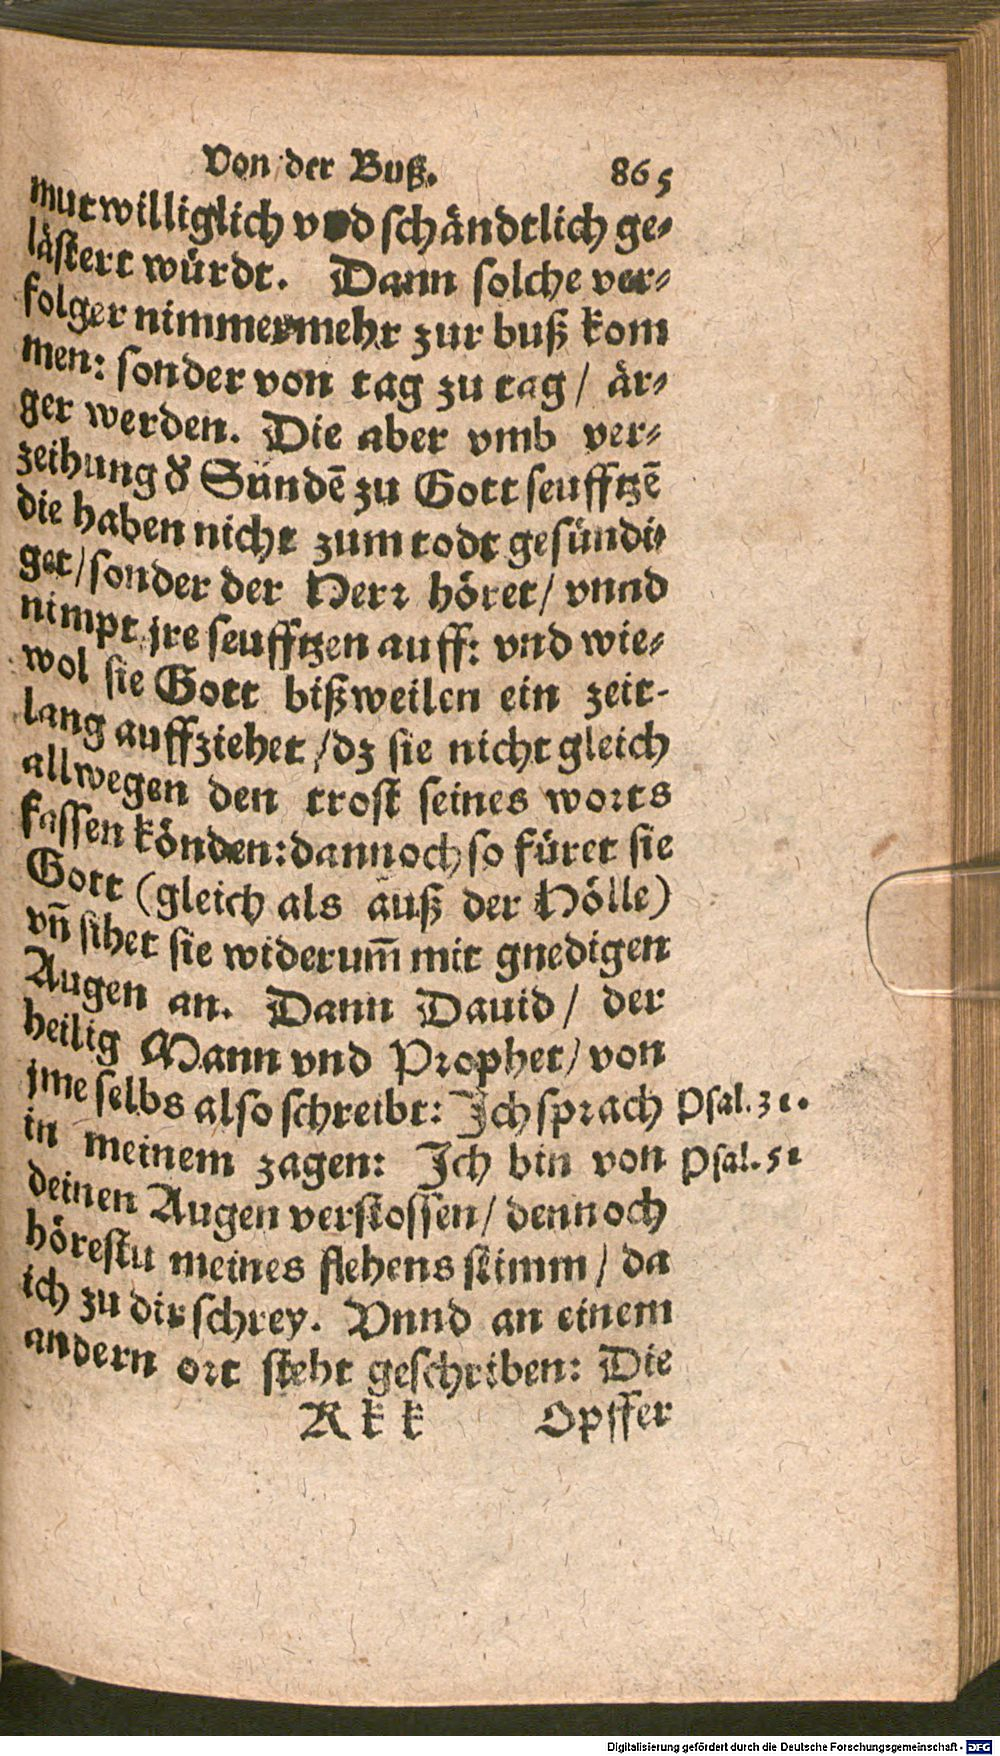 Von der Buß. 865
mutwilliglich vnd schändtlich ge⸗
lästert würdt. Dann solche ver⸗
folger nimmermehr zur buß kom
men: sonder von tag zu tag / är⸗
ger werden. Die aber vmb ver⸗
zeihung d̕ Sündē zu Gott seufftzē
die haben nicht zum todt gesündi⸗
get / sonder der Herr höret / vnnd
nimpt jre seufftzen auff: vnd wie⸗
wol sie Gott bißweilen ein zeit-
lang auffziehet / dz sie nicht gleich
allwegen den trost seines worts
fassen könden: dannoch so füret sie
Gott (gleich als auß der Hölle)
vn̄ sihet sie widerum̄ mit gnedigen
Augen an. Dann Dauid / der
heilig Mann vnd Prophet / von
jme selbs also schreibt: Ich sprach Psal. 31.
in meinem zagen: Ich bin von Psal. 51
deinen Augen verstossen / dennoch
hörestu meines flehens stimm / da
ich zu dir schrey. Vnnd an einem
andern ort steht geschriben: Die
K k k Opffer
Digitalisierung gefördert durch die Deutsche Forschungsgemeinschaft - DFG